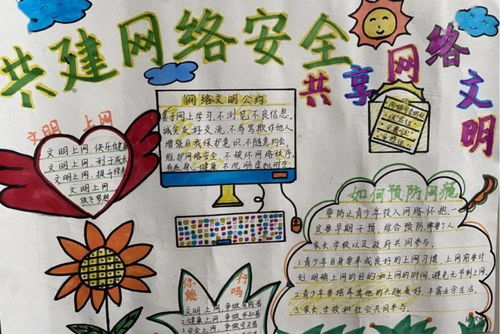 共建网络安全
共享网络文明
文明 上网
文明上网,快乐健康
文明上网,利于成长
文明上网
放飞梦想
网络文明公约
善于网上学习,不浏览不良信息,
诚实友好交流,不侮辱欺诈他人
增强自我保护意识,不随意约会,
维护网络安全,不破坏网络秩序
有益身心健康,不沉溺虚拟时空
如何预防网瘾
要防止青少年投入网络怀抱,
应要早期干预,综合预防,需要个人
家长学校以及政府共同参与。
1.青少年自身要养成良好的上网习惯,上网前要计
划,明确上网的目的和上网的时间,避免无节制上网。
2.青少年要培养其他的兴趣爱好,丰富余生活,
3.家长学校和社会共同参与。
你能 行吗
文明上网,争做